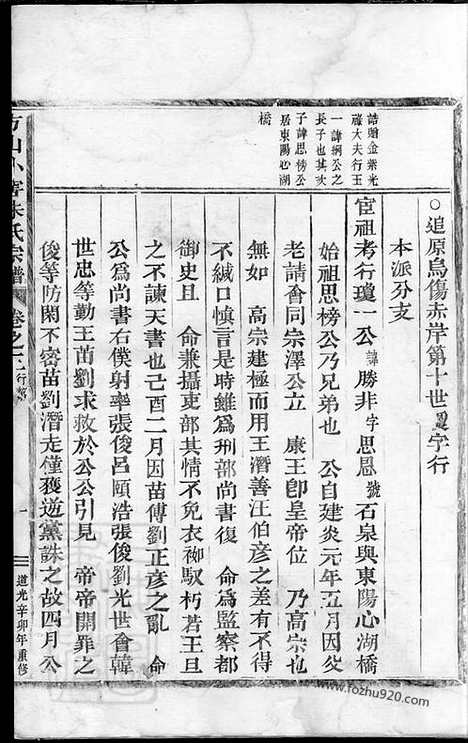 誥贈金紫光
祿大夫行王
一諱㭎公之
長子也其次
子諱思榜公
居東陽心湖
橋
○追原烏傷赤岸第十世字行
本派分支
宦祖考行瓊一公諱勝非字思恩號石泉與東陽心湖橋
始祖思榜公乃兄弟也 公自建炎元年五月因炎
老請會同宗澤公立 康王卽皇帝位 乃高宗也
無如 高宗建極而用王潛善汪伯彥之差有不得
不緘口愼言是時雖爲刑部尚書復 命爲監察都
御史且 命兼攝吏部其情不免衣袽馭朽若王旦
之不諫天書也己酉二月因苗傅劉正彥之亂 命
公爲尚書右僕射率張俊呂頤浩張俊劉光世會韓
世忠等勤王苗劉求救於公公引見 帝帝開罪之
後等防閑不密苗劉潛走僅獲遊黨誅之故四月公
方山小宅朱氏宗譜 卷之 行第 一
道光辛卯年重修
www.fozhu920.com